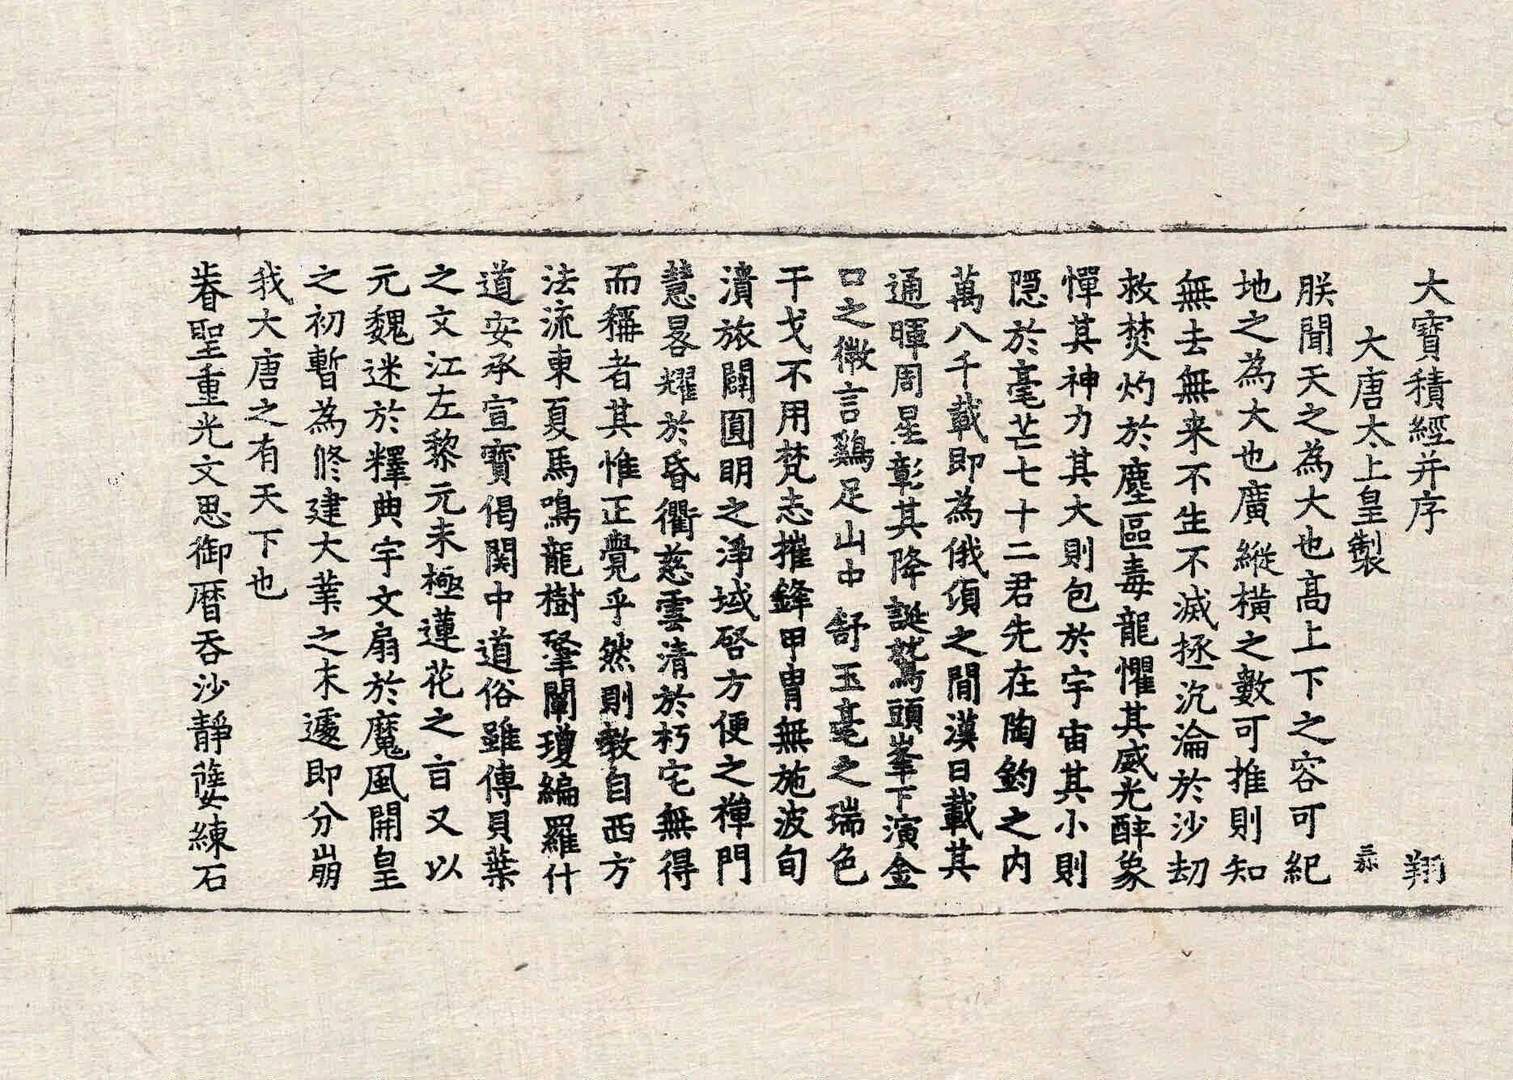 大寶積經并序 翔
大唐太上皇製
朕聞天之為大也高上下之容可紀
地之為大也廣縱橫之數可推則知
無去無来不生不滅拯沉淪於沙劫
救焚灼於塵區毒龍懼其威光醉象
憚其神力其大則包於宇宙其小則
隱於毫芒七十二君先在陶鈞之内
萬八千載即為俄頃之間漢日載其
通暉周星彰其降誕鷲頭峯下演金
口之微言鷄足山中舒玉毫之瑞色
干戈不用梵志摧鋒甲胄無施波旬
潰旅闢圓明之淨域啓方便之禪門
慧晷耀於昏衢慈雲清於朽宅無得
而稱者其惟正覺乎然則教自西方
法流東夏馬鳴龍樹肇闡瓊編羅什
道安承宣寶偈関中道俗雖傳貝葉
之文江左黎元未極蓮花之旨又以
元魏迷於釋典宇文扇於魔風開皇
之初暫為修建大業之末遽即分崩
我大唐之有天下也
聖重光文思御曆吞沙靜孽練石